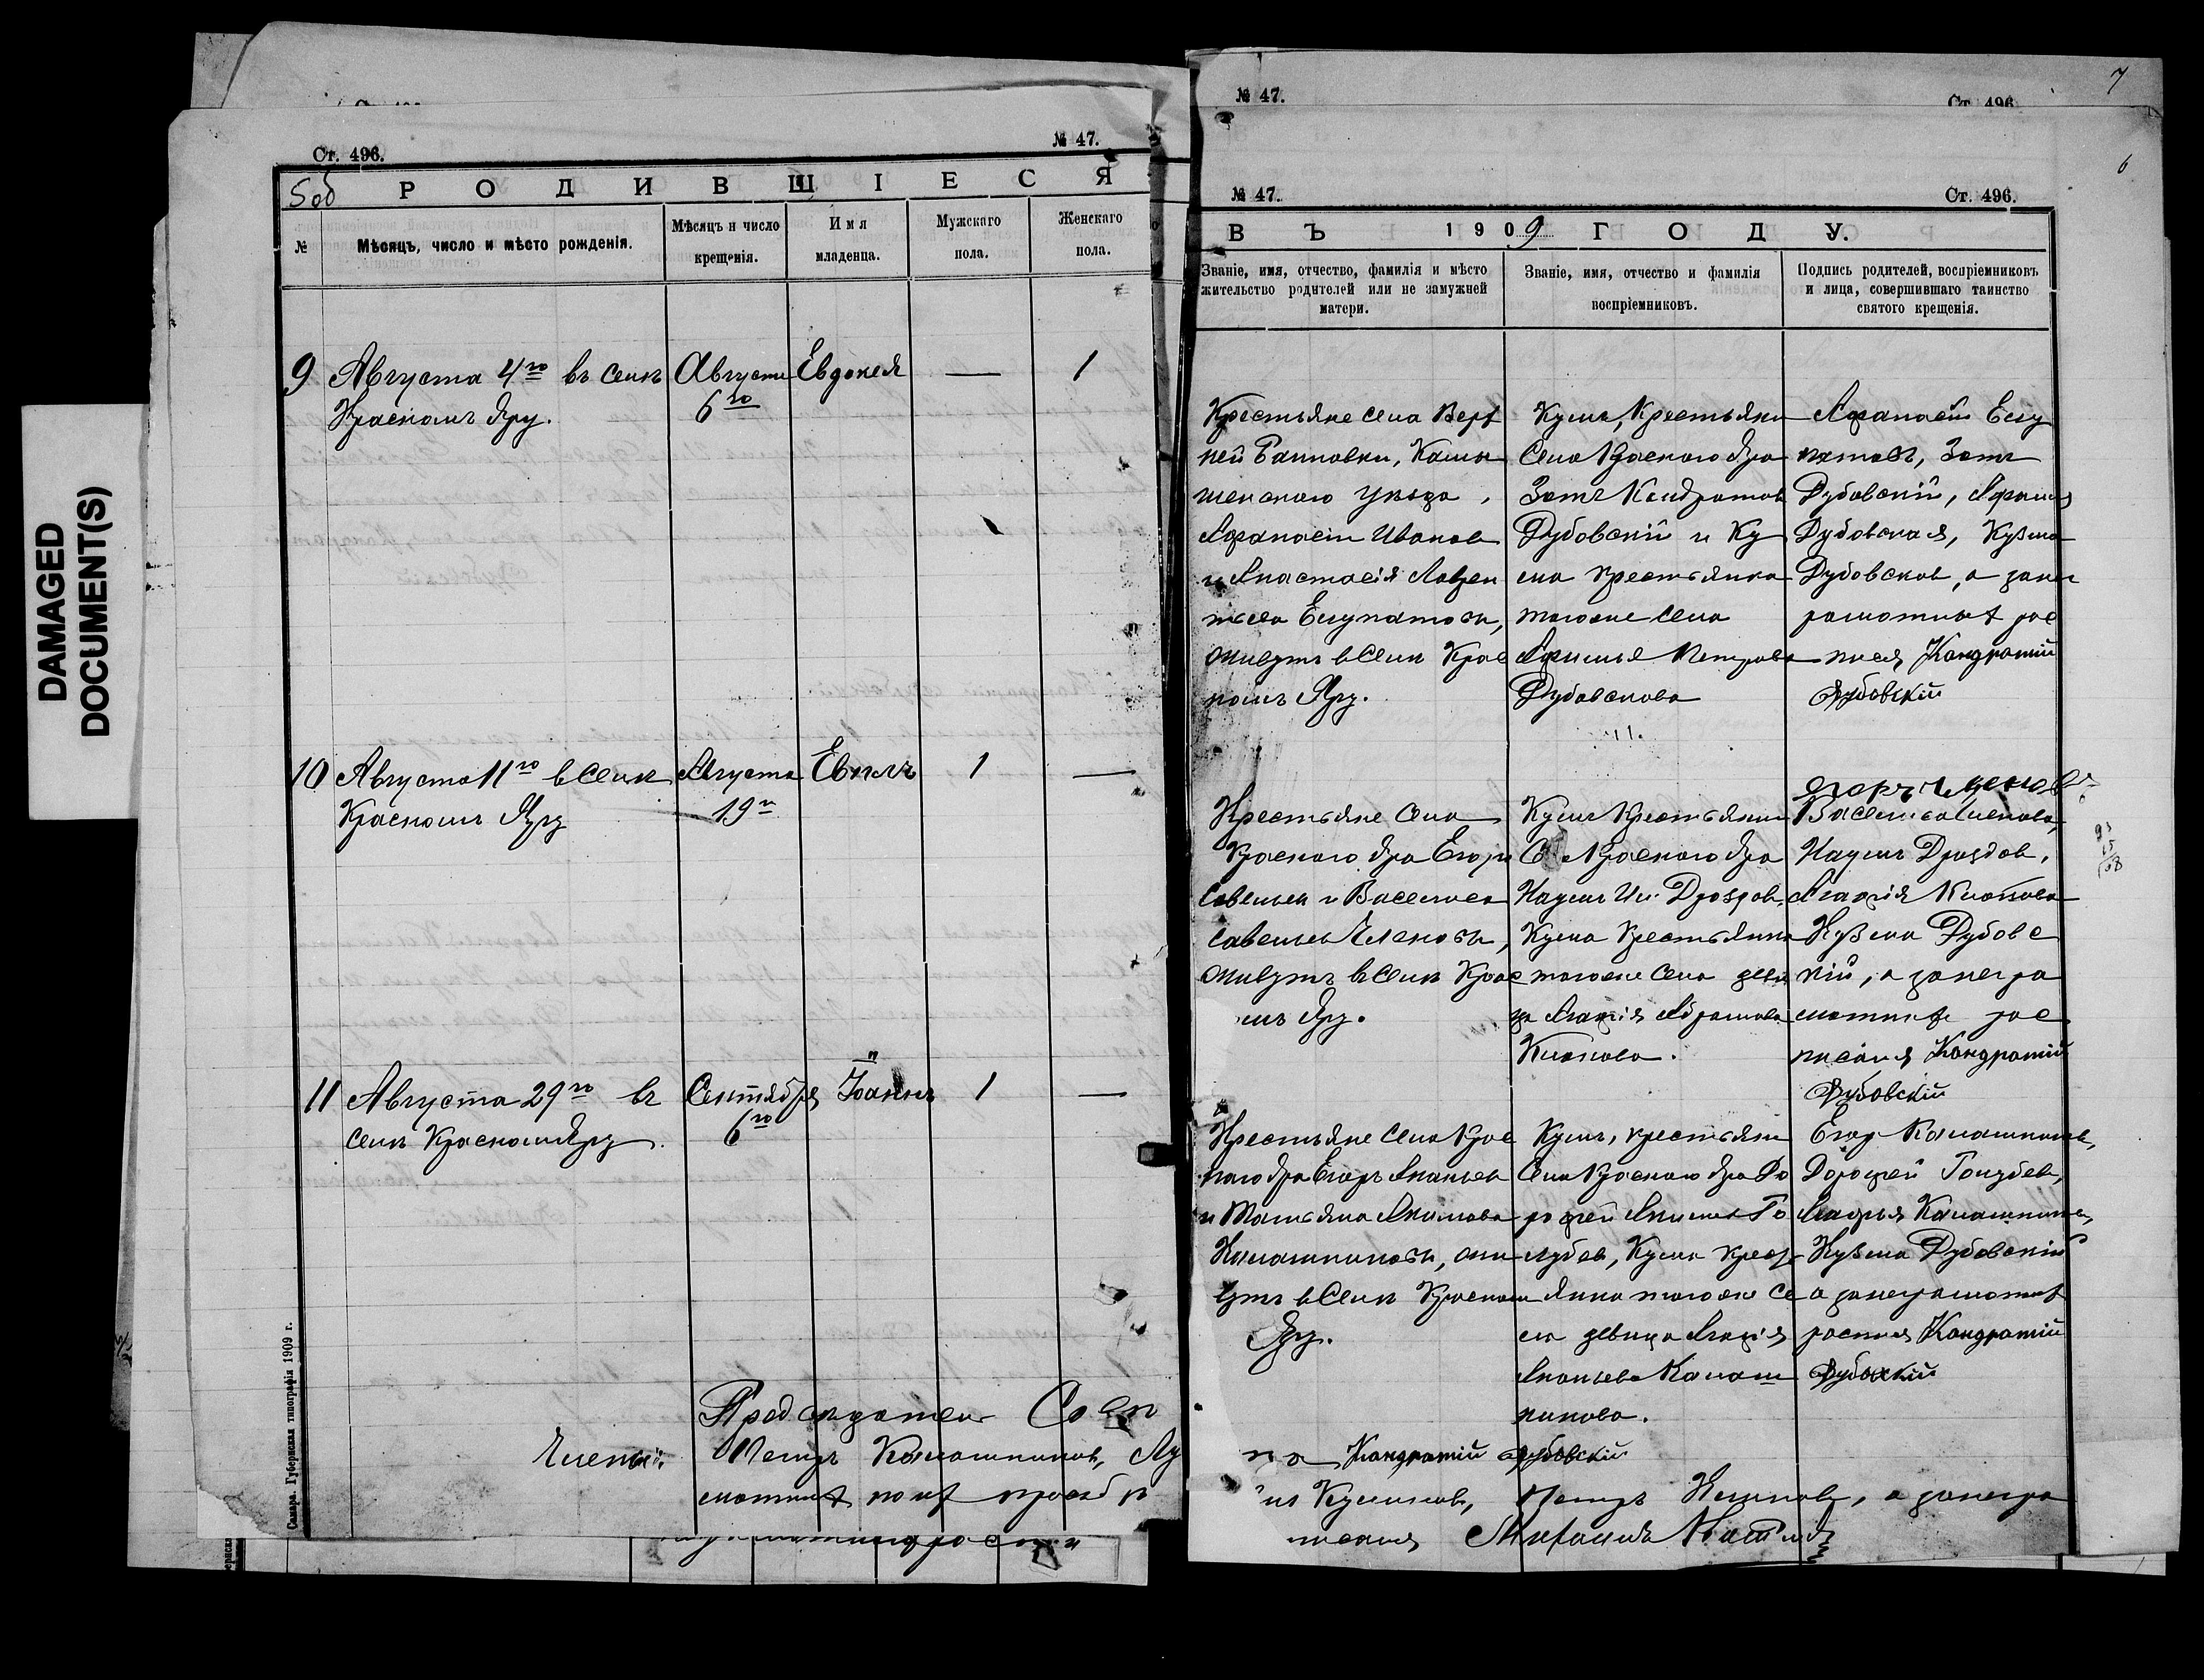 DAMAGED
DOCUMENT(S)
Ст. 496.
№ 47.
5 об
РОДИВШІЕСЯ
№
Мѣсяцъ, число и мѣсто рожденія.
Мѣсяцъ и число
крещенія.
Имя
младенца.
Мужскаго
пола.
Женскаго
пола.
9 Августа 4го въ селѣ Августа Евдокея — 1
Красномъ Яру. 6го
10 Августа 11го в селѣ Августа Евпелъ 1 —
Красномъ Яру 19го
11 Августа 29го въ Сентября Іоаннъ 1 —
селѣ Красномъ Яру. 6го
Предсѣдатель Совѣ
Члены: Петръ Калашниковъ, Лу
Самара. Губернская типографія 1909 г.
№ 47.
Ст. 496
7
6
№ 47.
Ст. 496.
ВЪ 1909 ГОДУ.
Званіе, имя, отчество, фамилія и мѣсто
жительство родителей или не замужней
матери.
Званіе, имя, отчество и фамилія
воспріемниковъ.
Подпись родителей, воспріемниковъ
и лица, совершившаго таинство
святого крещенія.
Крестьяне села Верх
ней Банновки, Камы
шенскаго уѣзда,
Афанасій Иванов
и Анастасія Лаврен
тьева Есипатовы,
живутъ в селѣ Крас
номъ Яру.
Кумъ, Крестьянин
Села Краснаго Яра
Зотъ Кондратов
Дубовскій и Ку
ма крестьянка
тогоже села
Афимья Петрова
Дубовскова
Афанасій Еси
патовъ, Зотъ
Дубовскій, Афимья
Дубовская, Кузма
Дубовсков, а занег
рамотных рос
писал Кандратій
Дубовскій
Крестьяне села
Краснаго Яра Егоръ
Савельев и Васелиса
Савельев Членовы,
живутъ в селѣ Крас
мъ Яру.
Кумъ Крестьянин
Се Краснаго Яра
Наумъ Ил. Дроздов,
Кума Крестьянка
тогоже села деви
ца Агафія Абрамова
Климова.
Егоръ Членовъ
Васелиса Членова,
Наумъ Дроздов,
Агафія Климова
Кузма Дубовс
кій, а занегра
мотных рос
писался Кандратій
Дубовскій
Крестьяне села Крас
наго Яра Егоръ Ананьев
и Татьяна Акимова
Калашниковы, жи
вутъ в селѣ Красном
Яру.
Кумъ, крестьянин
Села Краснаго Яра До
рофей Акимов Го
лубев, Кума крест
янка тогоже се
ла девица Агафія
Ананьева Калаш
никова.
Егор Калашников,
Дорофей Голубев,
Агафья Калашникова,
Кузма Дубовскій
а занеграмотных
росписался Кандратій
Дубовскій
та Кандратій Дубовскій
Петръ Климов, а занегра
писался Михаилъ